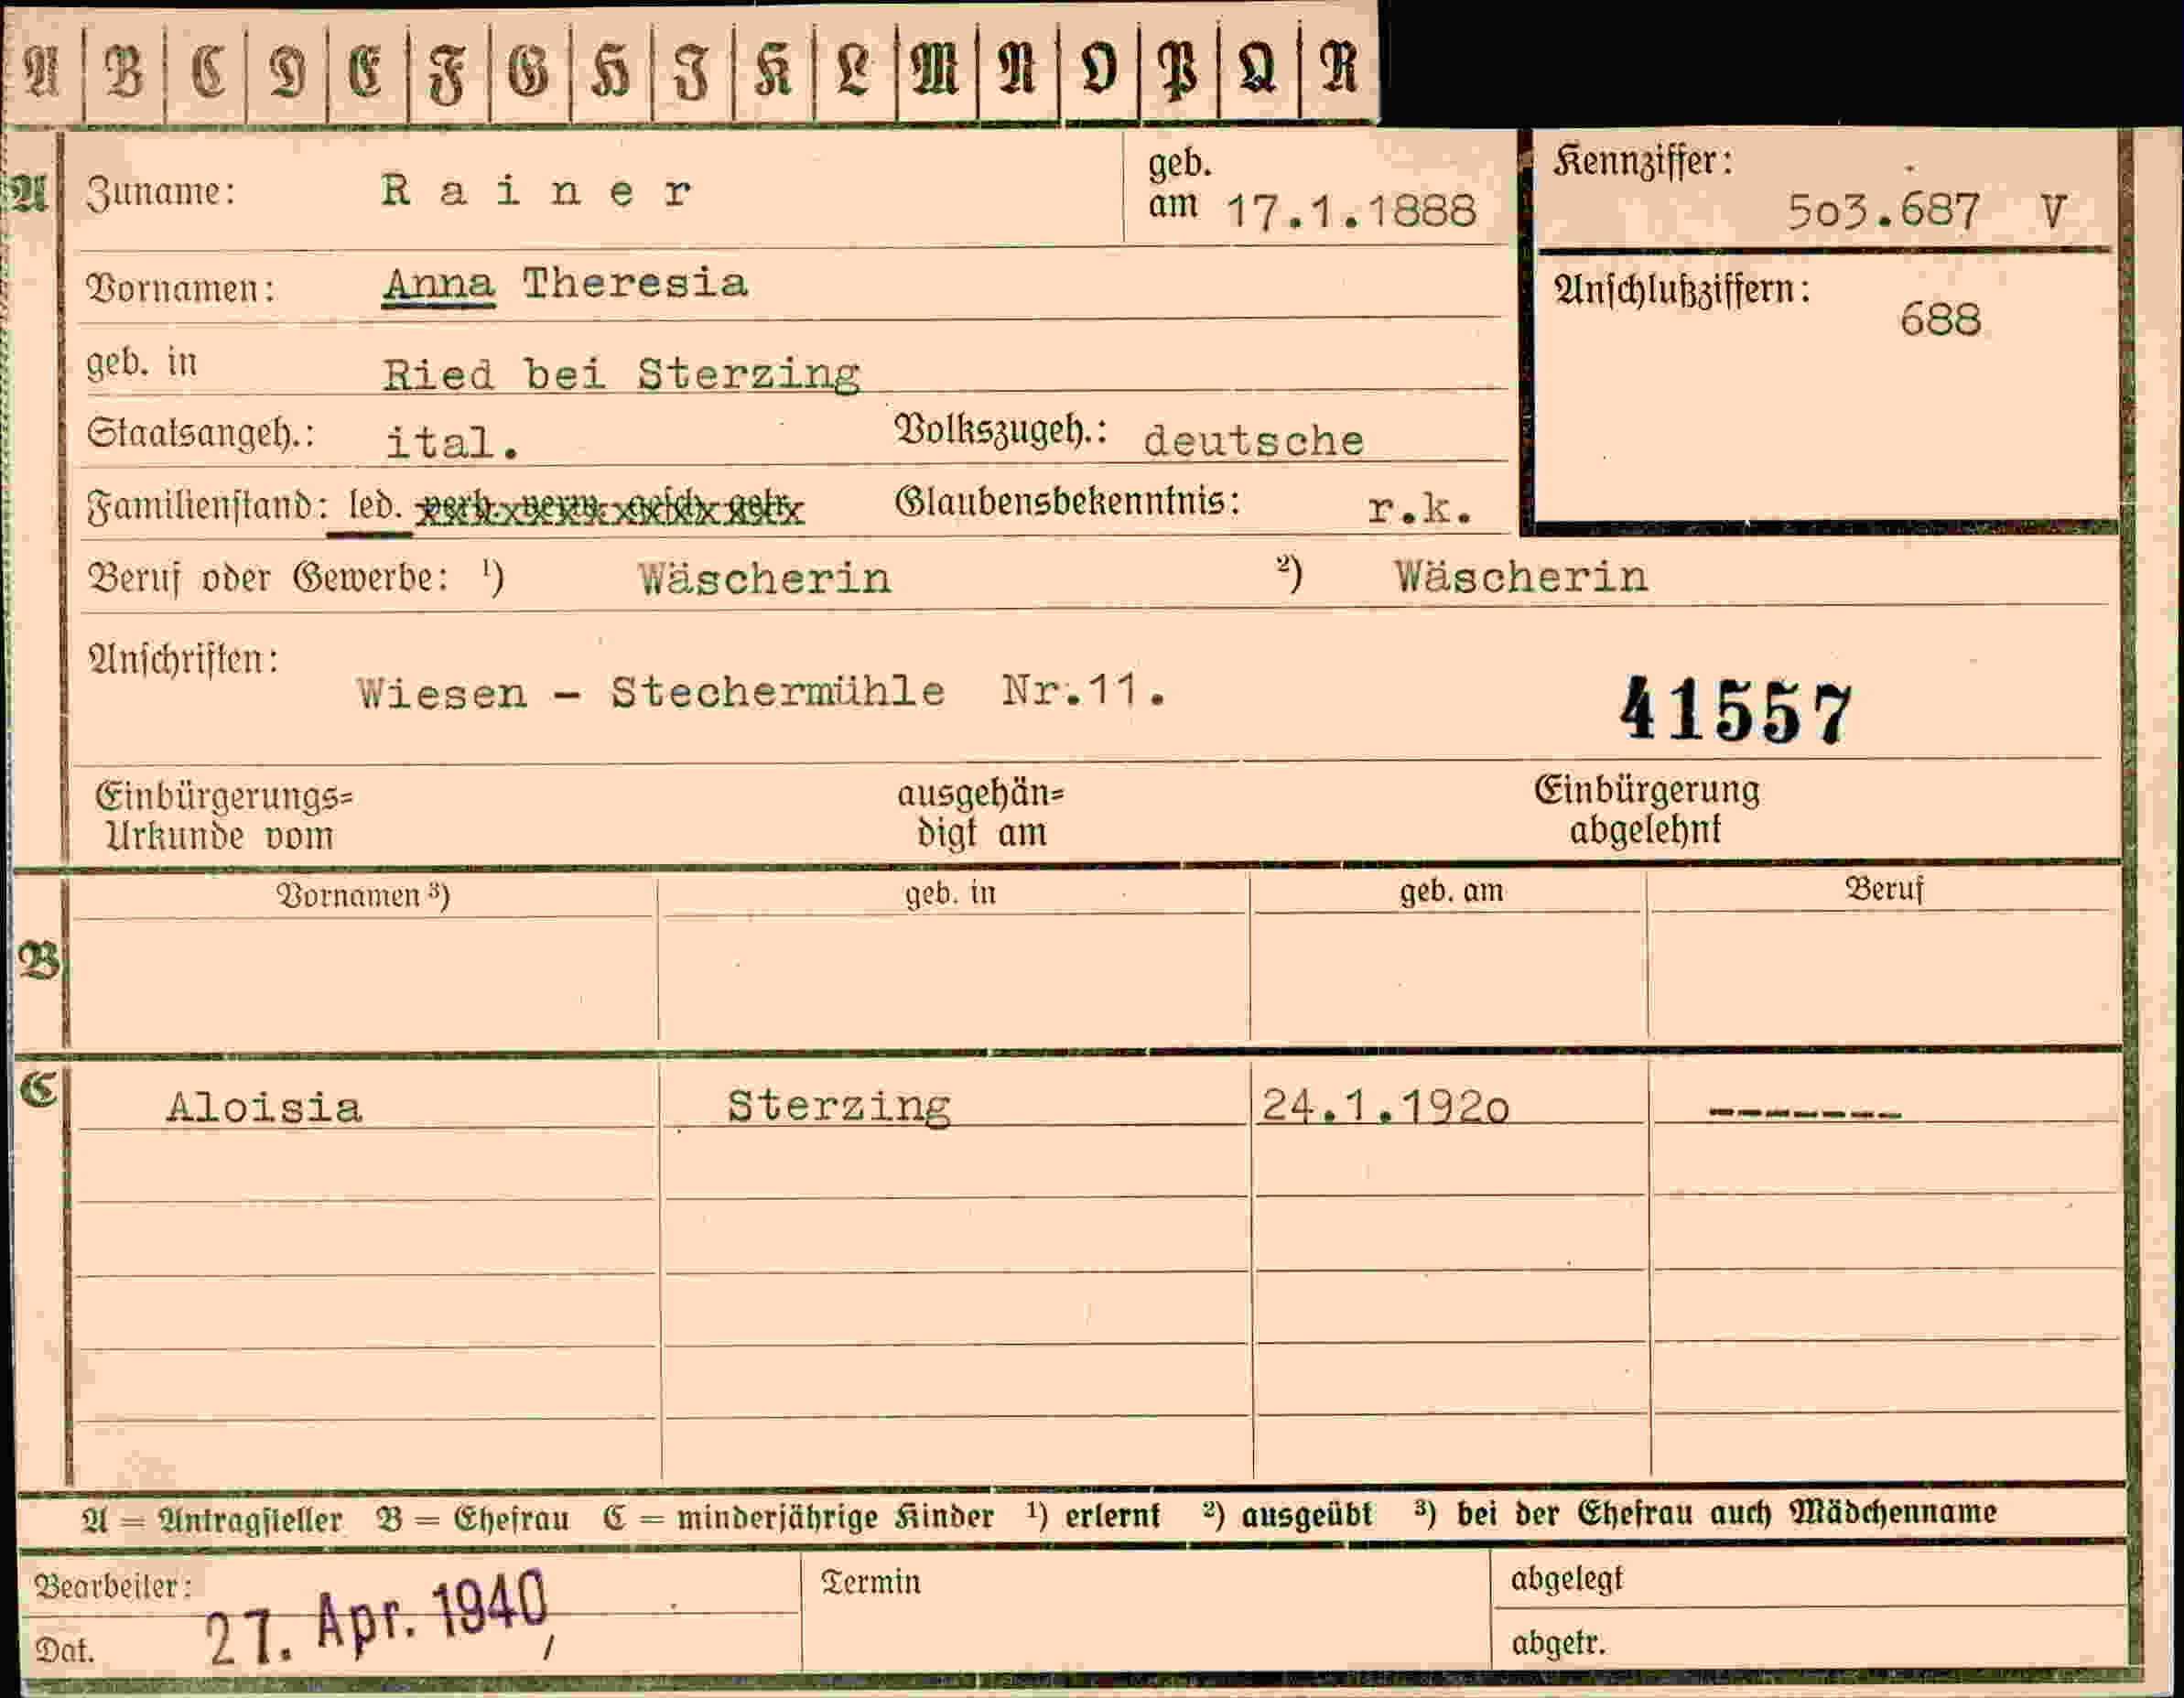 A B C D E F G H J K L M N O P Q R
A Zuname: Rainer geb. am 17.1.1888
Kennziffer: 503.687 V
Vornamen: Anna Theresia
Anschlußziffern: 688
geb. in Ried bei Sterzing
Staatsangeh.: ital. Volkszugeh.: deutsche
Familienstand: led. Glaubensbekenntnis: r.k.
Beruf oder Gewerbe: 1) Wäscherin 2) Wäscherin
Anschriften: Wiesen - Stechermühle Nr.11.
41557
Einbürgerungs= ausgehän= Einbürgerung
Urkunde vom digt am abgelehnt
Vornamen 3) geb. in geb. am Beruf
B
C Aloisia Sterzing 24.1.1920 -------
A = Antragsteller B = Ehefrau C = minderjährige Kinder 1) erlernt 2) ausgeübt 3) bei der Ehefrau auch Mädchenname
Bearbeiter: Termin abgelegt
Dat. 27. Apr. 1940 abgetr.